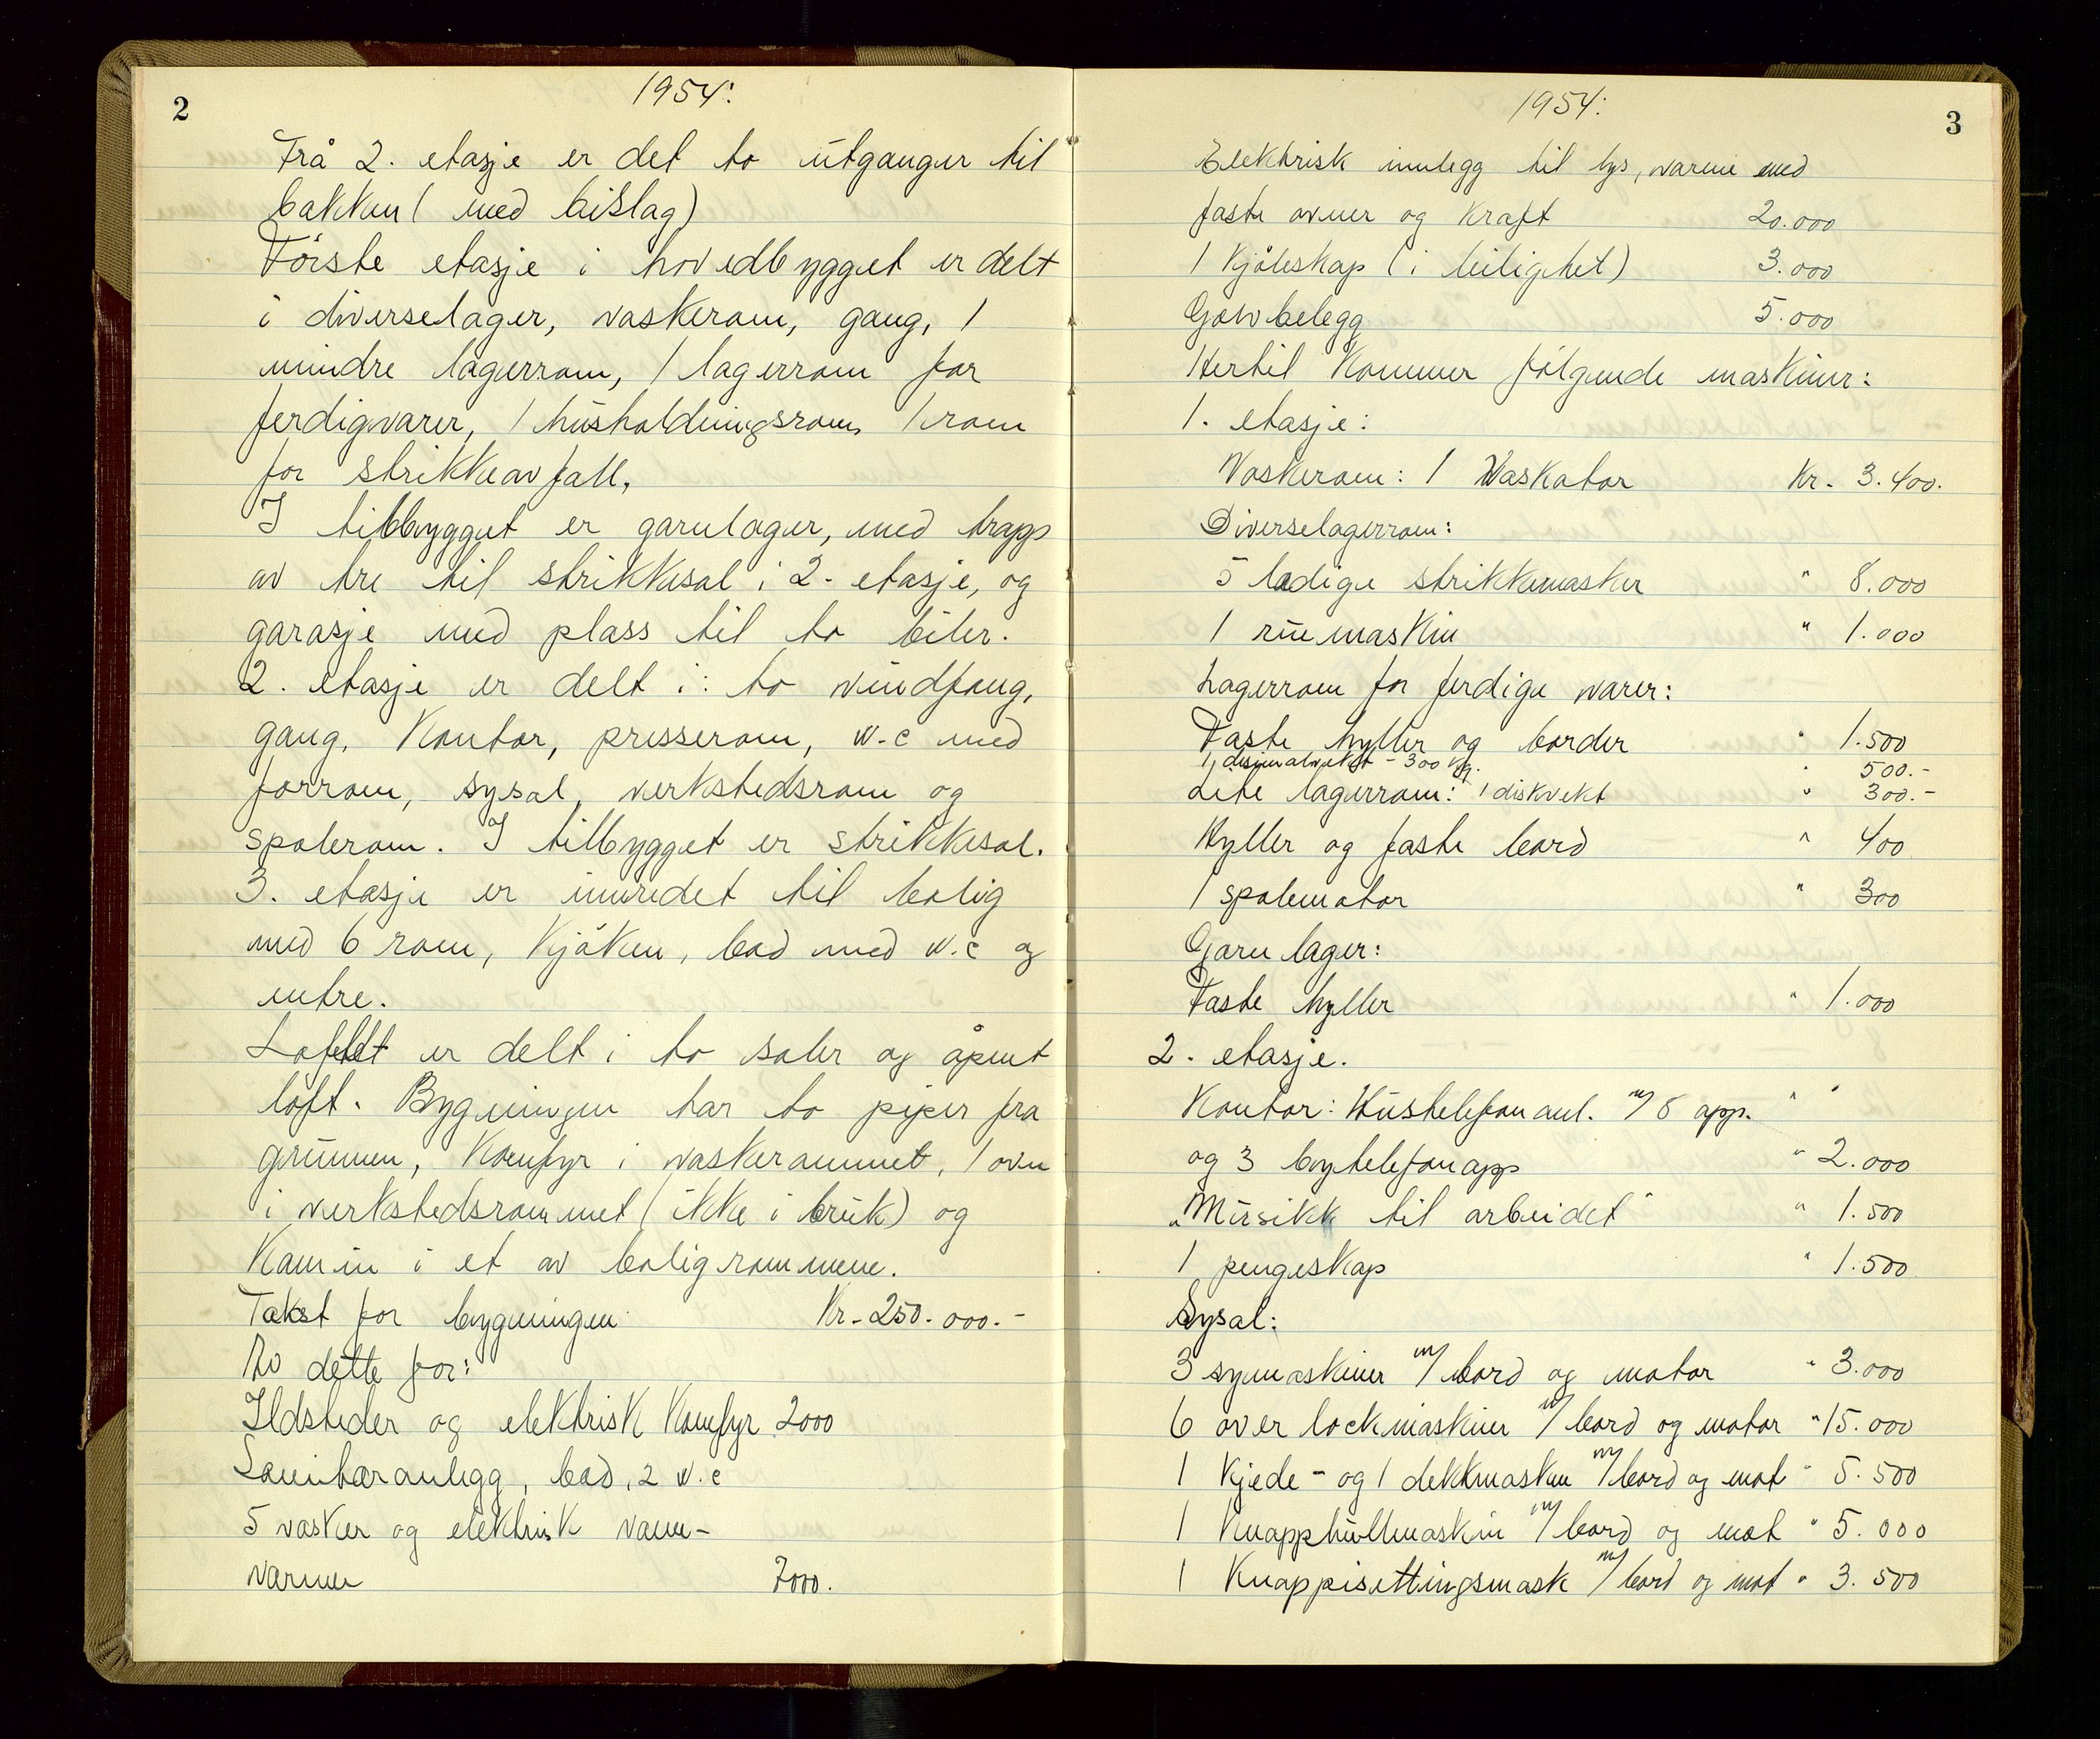 2
1954:
Frå 2. etasje er det to utganger til
bakken ( med bislag)
Første etasje i hovedbygget er delt
i diverselager, vaskerom, gang, 1
mindre lagerrom, 1 lagerrom for
ferdigvarer, 1 husholdningsrom, 1 rom
for strikkeavfall.
I tilbygget er garnlager, med trapp
av tre til strikkesal i 2. etasje, og
garasje med plass til to biler.
2. etasje er delt i: to vindfang,
gang, kontor, presserom, w.c med
forrom, sysal, verkstedsrom og
spolerom. I tilbygget er strikkesal.
3. etasje er innredet til bolig
med 6 rom, kjøken, bad med w.c og
entre.
Loftet er delt i to saler og åpent
loft. Bygningen har to piper fra
grunnen, komfyr i vaskerommet, 1 ovn
i verkstedsrommet (ikke i bruk) og
kamin i et av boligrommene.
Takst for bygningen Kr. 250.000.-
Av dette for:
Ildsteder og elektrisk komfyr 2000
Sanitæranlegg, bad, 2 w.c
5 vasker og elektrisk vann-
varmer 7000.
3
1954:
Elektrisk innlegg til lys, varme med
faste ovner og kraft 20.000
1 kjøleskap (i leilighet) 3.000
Golvbelegg 5.000
Hertil kommer følgende maskiner:
1. etasje:
Vaskerom: 1 Waskator Kr. 3.400.
Diverselagerrom:
5 ledige strikkemasker " 8.000
1 ruemaskin " 1.000
Lagerrom for ferdige varer:
Faste hyller og border " 1.500
1 desimalvekt - 300 kg. " 500.-
Lite lagerrom: 1 diskvekt " 300.-
Hyller og faste bord " 400
1 spolemotor " 300
Garnlager:
Faste hyller " 1.000
2. etasje.
Kontor: Hustelefonanl. m/ 8 app. " "
og 3 bytelefonapp " 2.000
"Musikk til arbeidet" " 1.500
1 pengeskap " 1.500
Sysal:
3 symaskiner m/ bord og motor " 3.000
6 over lockmaskiner m/ bord og motor " 15.000
1 kjede- og 1 dekkmaskin m/ bord og mot " 5.500
1 knapphullmaskin m/ bord og mot " 5.000
1 knappisettingsmask m/ bord og mot " 3.500